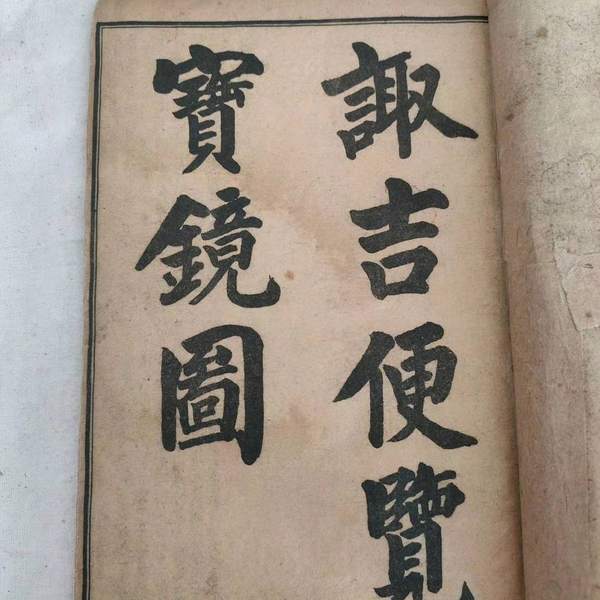 諏吉便覽
寶鏡圖